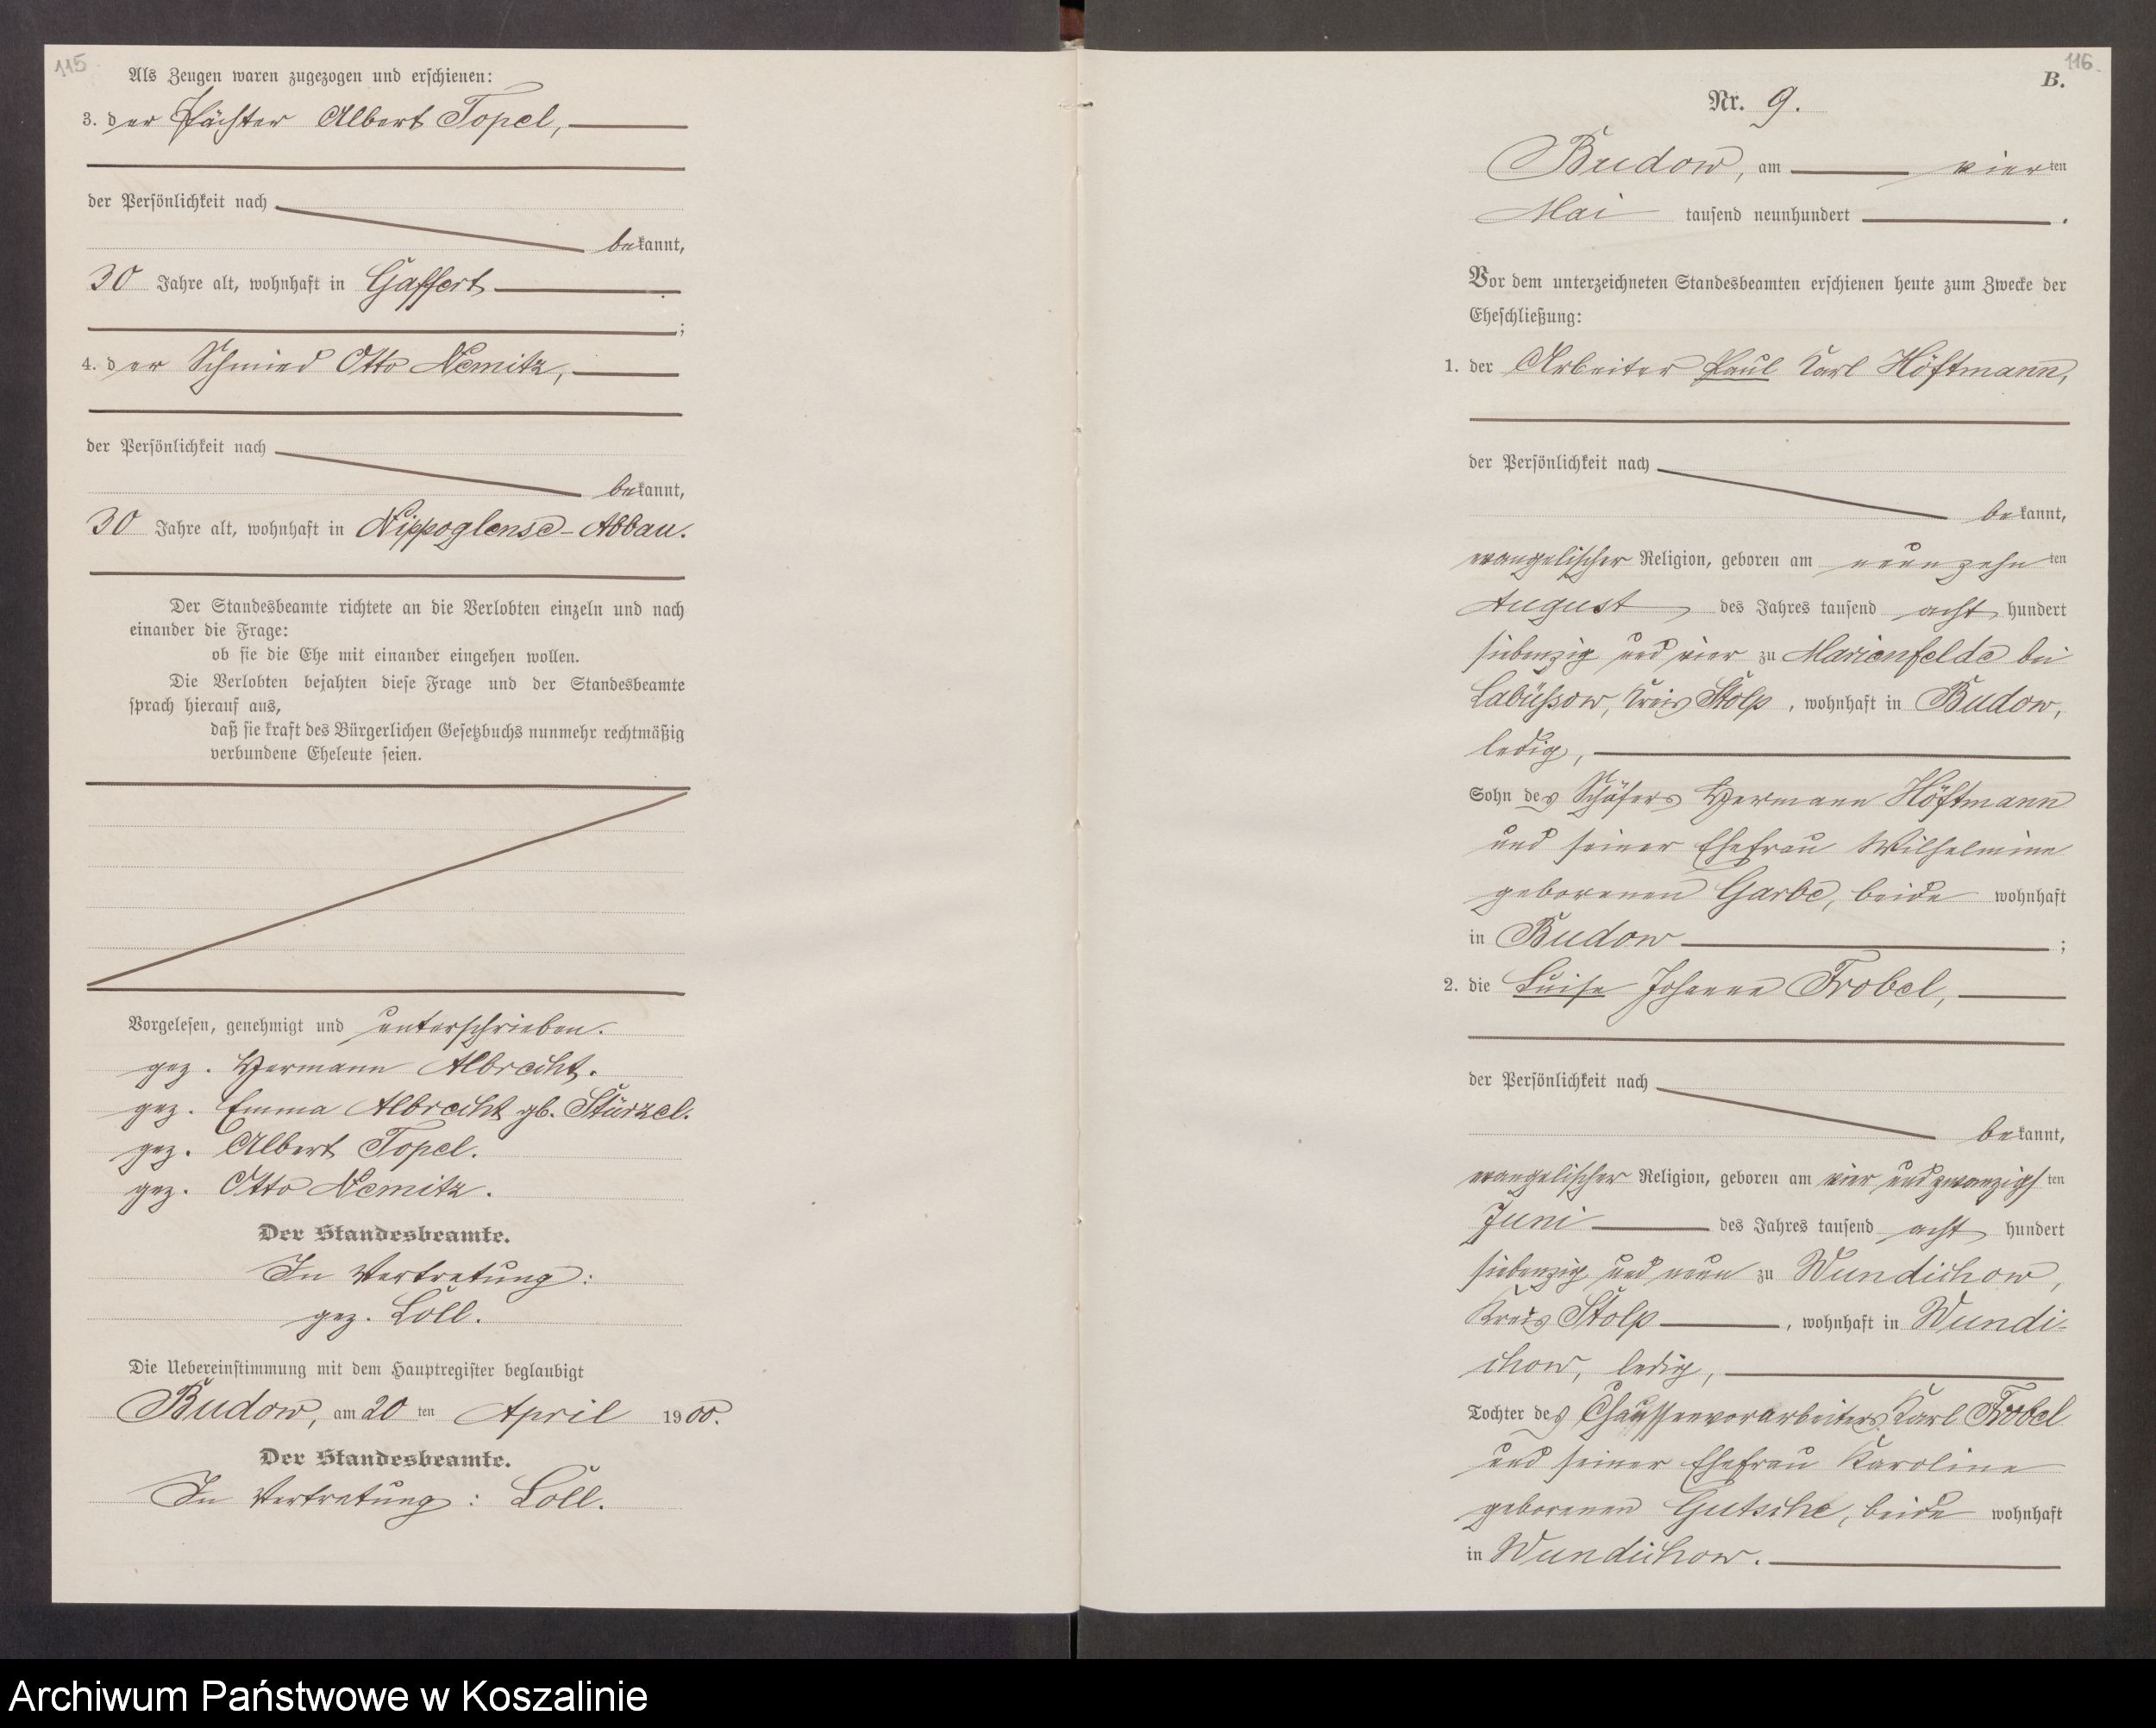 115.
Als Zeugen waren zugezogen und erschienen:
3. der Pächter Albert Topel,
der Persönlichkeit nach
bekannt,
30 Jahre alt, wohnhaft in Gaffert
;
4. der Schmied Otto Nemitz,
der Persönlichkeit nach
bekannt,
30 Jahre alt, wohnhaft in Nippoglense-Abbau.
Der Standesbeamte richtete an die Verlobten einzeln und nach
einander die Frage:
ob sie die Ehe mit einander eingehen wollen.
Die Verlobten bejahten diese Frage und der Standesbeamte
sprach hierauf aus,
daß sie kraft des Bürgerlichen Gesetzbuchs nunmehr rechtmäßig
verbundene Eheleute seien.
Vorgelesen, genehmigt und unterschrieben.
gez. Hermann Albrecht.
gez. Emma Albrecht gb. Stürzel.
gez. Albert Topel.
gez. Otto Nemitz.
Der Standesbeamte.
In Vertretung:
gez. Loll.
Die Uebereinstimmung mit dem Hauptregister beglaubigt
Budow, am 20 ten April 1900.
Der Standesbeamte.
In Vertretung: Loll.
116.
B.
Nr. 9.
Budow, am vierten
Mai tausend neunhundert .
Vor dem unterzeichneten Standesbeamten erschienen heute zum Zwecke der
Eheschließung:
1. der Arbeiter Paul Karl Höftmann,
der Persönlichkeit nach
bekannt,
evangelischer Religion, geboren am neunzehn ten
August des Jahres tausend acht hundert
siebenzig und vier zu Marienfelde bei
Labüssow, Kreis Stolp, wohnhaft in Budow,
ledig,
Sohn des Schäfers Hermann Höftmann
und seiner Ehefrau Wilhelmine
geborenen Garbe, beide wohnhaft
in Budow ;
2. die Luise Johanne Frobel,
der Persönlichkeit nach
bekannt,
evangelischer Religion, geboren am vier und zwanzigsten
Juni des Jahres tausend acht hundert
siebenzig und neun zu Wundichow,
Kreis Stolp, wohnhaft in Wundi-
chow, ledig,
Tochter des Chausseevorarbeiters Karl Frobel
und seiner Ehefrau Karoline
geborenen Gutsche, beide wohnhaft
in Wundichow.
Archiwum Państwowe w Koszalinie